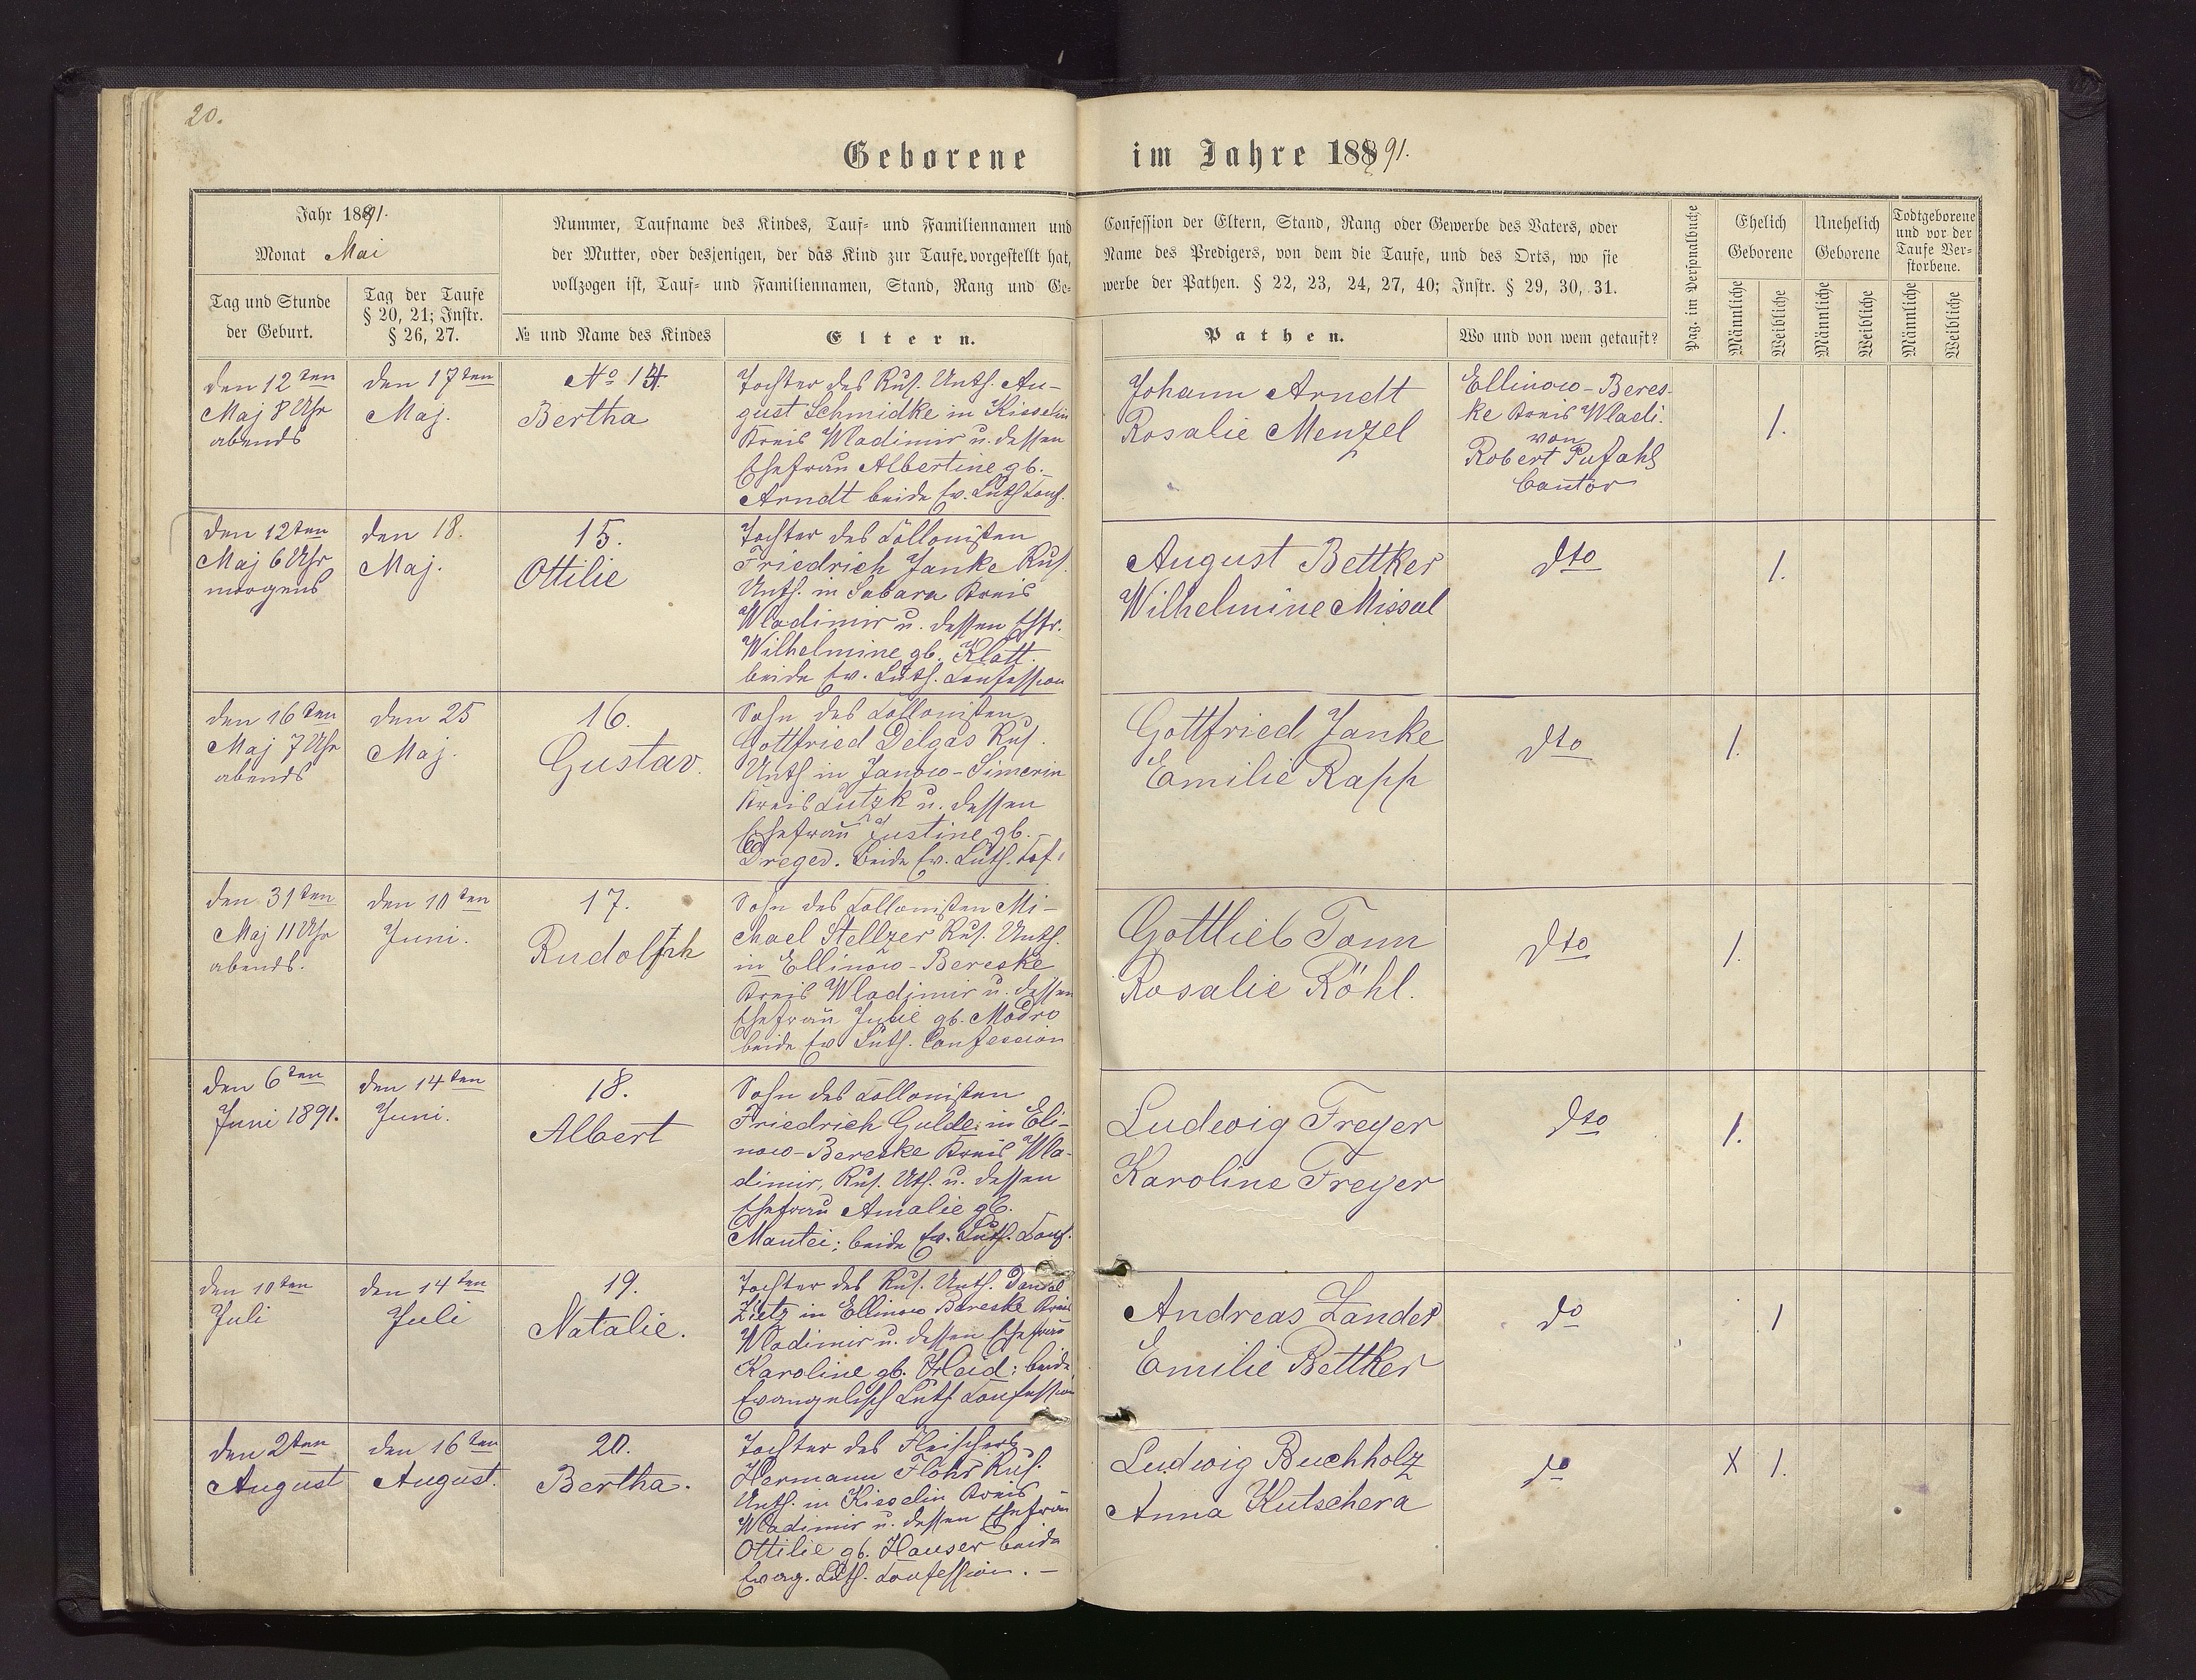 20.
Geborene im Jahre 188891.
Jahr 1891.
Monat Mai
Nummer, Taufname des Kindes, Tauf- und Familiennamen und
der Mutter, oder desjenigen, der das Kind zur Taufe vorgestellt hat,
vollzogen ist, Tauf- und Familiennamen, Stand, Rang und Ge-
Confession der Eltern, Stand, Rang oder Gewerbe des Vaters, oder
Name des Predigers, von dem die Taufe, und des Orts, wo sie
werbe der Pathen. § 22, 23, 24, 27, 40; Instr. § 29, 30, 31.
Pag. im Personalbuche
Ehelich
Geborene
Unehelich
Geborene
Todtgeborene
und vor der
Taufe Ver-
storbene.
Tag und Stunde
der Geburt.
Tag der Taufe
§ 20, 21; Instr.
§ 26, 27.
№ und Name des Kindes
Eltern.
Pathen.
Wo und von wem getauft?
Männliche
Weibliche
Männliche
Weibliche
Männliche
Weibliche
den 12ten
Maj 8 Uhr
abends
den 17ten
Maj.
No 14.
Bertha
Tochter des Rus. Unth. Au-
gust Schmidke in Kisselin
Kreis Wladimir u. dessen
Ehefrau Albertine gb.
Arndt beide Ev. Luth Conf.
Johann Arndt
Rosalie Menzel
Ellinow-Beres-
ke Kreis Wladi.
von
Robert Pufahl
Cantor
1.
den 12ten
Maj 6 Uhr
morgens
den 18.
Maj.
15.
Ottilie
Tochter des Collonisten
Friedrich Janke Rus.
Unth. in Sabara Kreis
Wladimir u. dessen Ehfr.
Wilhelmine gb. Klatt.
beide Ev. Luth. Confession
August Bettker
Wilhelmine Missal
dto
1.
den 16ten
Maj 7 Uhr
abends
den 25
Maj.
16.
Gustav.
Sohn des Collonisten
Gottfried Delgas Rus.
Unth in Janow-Simerin
Kreis Lutzk u. dessen
Ehefrau Justine gb.
Dreged. beide Ev. Luth. Cof.
Gottfried Janke
Emilie Rapp
dto
1.
den 31ten
Maj 11 Uhr
abends.
den 10ten
Juni.
17.
Rudolph
Sohn des Collonisten Mi-
chael Stellzer Rus. Unth.
in Ellinow-Bereske
Kreis Wladimir u. dessen
Ehefrau Julie gb. Modro
beide Ev Luth. Confession
Gottlieb Tonn
Rosalie Röhl.
dto
1.
den 6ten
Juni 1891.
den 14ten
Juni.
18.
Albert
Sohn des Collonisten
Friedrich Gulde in Eli-
now-Bereske Kreis Wla-
dimir, Rus. Uth. u. dessen
Ehefrau Amalie gb.
Mantei; beide Ev. Luth. Conf.
Ludwig Freyer
Karoline Freyer
dto
1.
den 10ten
Juli
den 14ten
Juli
19.
Natalie.
Tochter des Rus. Unth. Daniel
Zietz in Ellinow Bereske Kreis
Wladimir u. dessen Ehefrau
Karoline gb. Heid; beide
Evangelisch Luth. Confession
Andreas Zander
Emilie Bettker
do
1
den 2ten
August
den 16ten
August.
20.
Bertha.
Tochter des Fleischers
Hermann Flohr Rus.
Unth. in Kisselin Kreis
Wladimir u. dessen Ehefrau
Ottilie gb. Hauser beide
Evag. Luth. Confession. —
Ludwig Buchholz
Anna Kutschera
do
X 1.